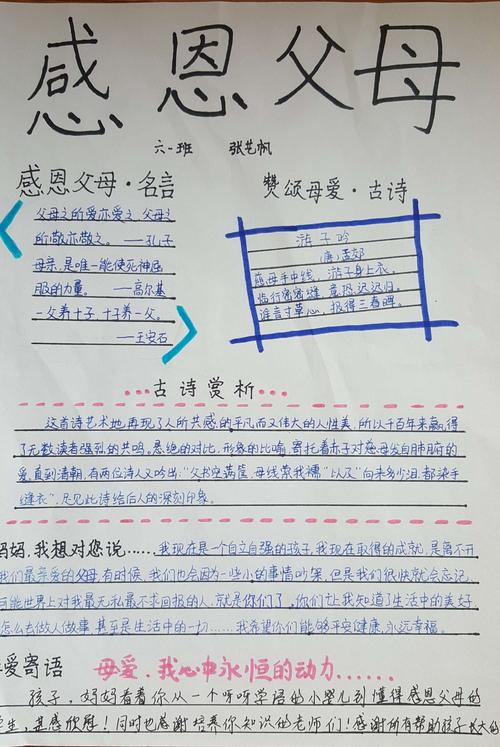 感恩父母
六一班 张艺帆
感恩父母·名言
父母之所爱亦爱之 父母之
所敬亦敬之。——孔子
母亲,是唯一能使死神屈
服的力量。——高尔基
一父养十子,十子养一父。
——王安石
赞颂母爱·古诗
游子吟
唐·孟郊
慈母手中线,游子身上衣。
临行密密缝,意恐迟迟归。
谁言寸草心,报得三春晖。
古诗赏析
这首诗艺术地再现了人所共感的平凡而又伟大的人性美,所以千百年来赢得
了无数读者强烈的共鸣。悬绝的对比,形象的比喻,寄托着赤子对慈母发自肺腑的
爱,直到清朝,有两位诗人又吟出:“父书空满筐,母线萦我襦”以及“向来多少泪,都染手
缝衣”,足见此诗给后人的深刻印象。
妈妈,我想对您说......我现在是一个自立自强的孩子,我现在取得的成就,是离不开
我们最亲爱的父母,有时候,我们也会因为一些小的事情吵架,但是我们很快就会忘记,
可能世界上对我最无私最不求回报的人,就是你们了,你们让我知道了生活中的美好,
怎么去做人做事,甚至是生活中的一切......我希望你们能够平安健康,永远幸福。
爱寄语
母爱,我心中永恒的动力......
孩子,妈妈看着你从一个呀呀学语的小婴儿到懂得感恩父母的
学生,甚感欣慰!同时也感谢培养你知识的老师们!感谢所有帮助孩子长大的